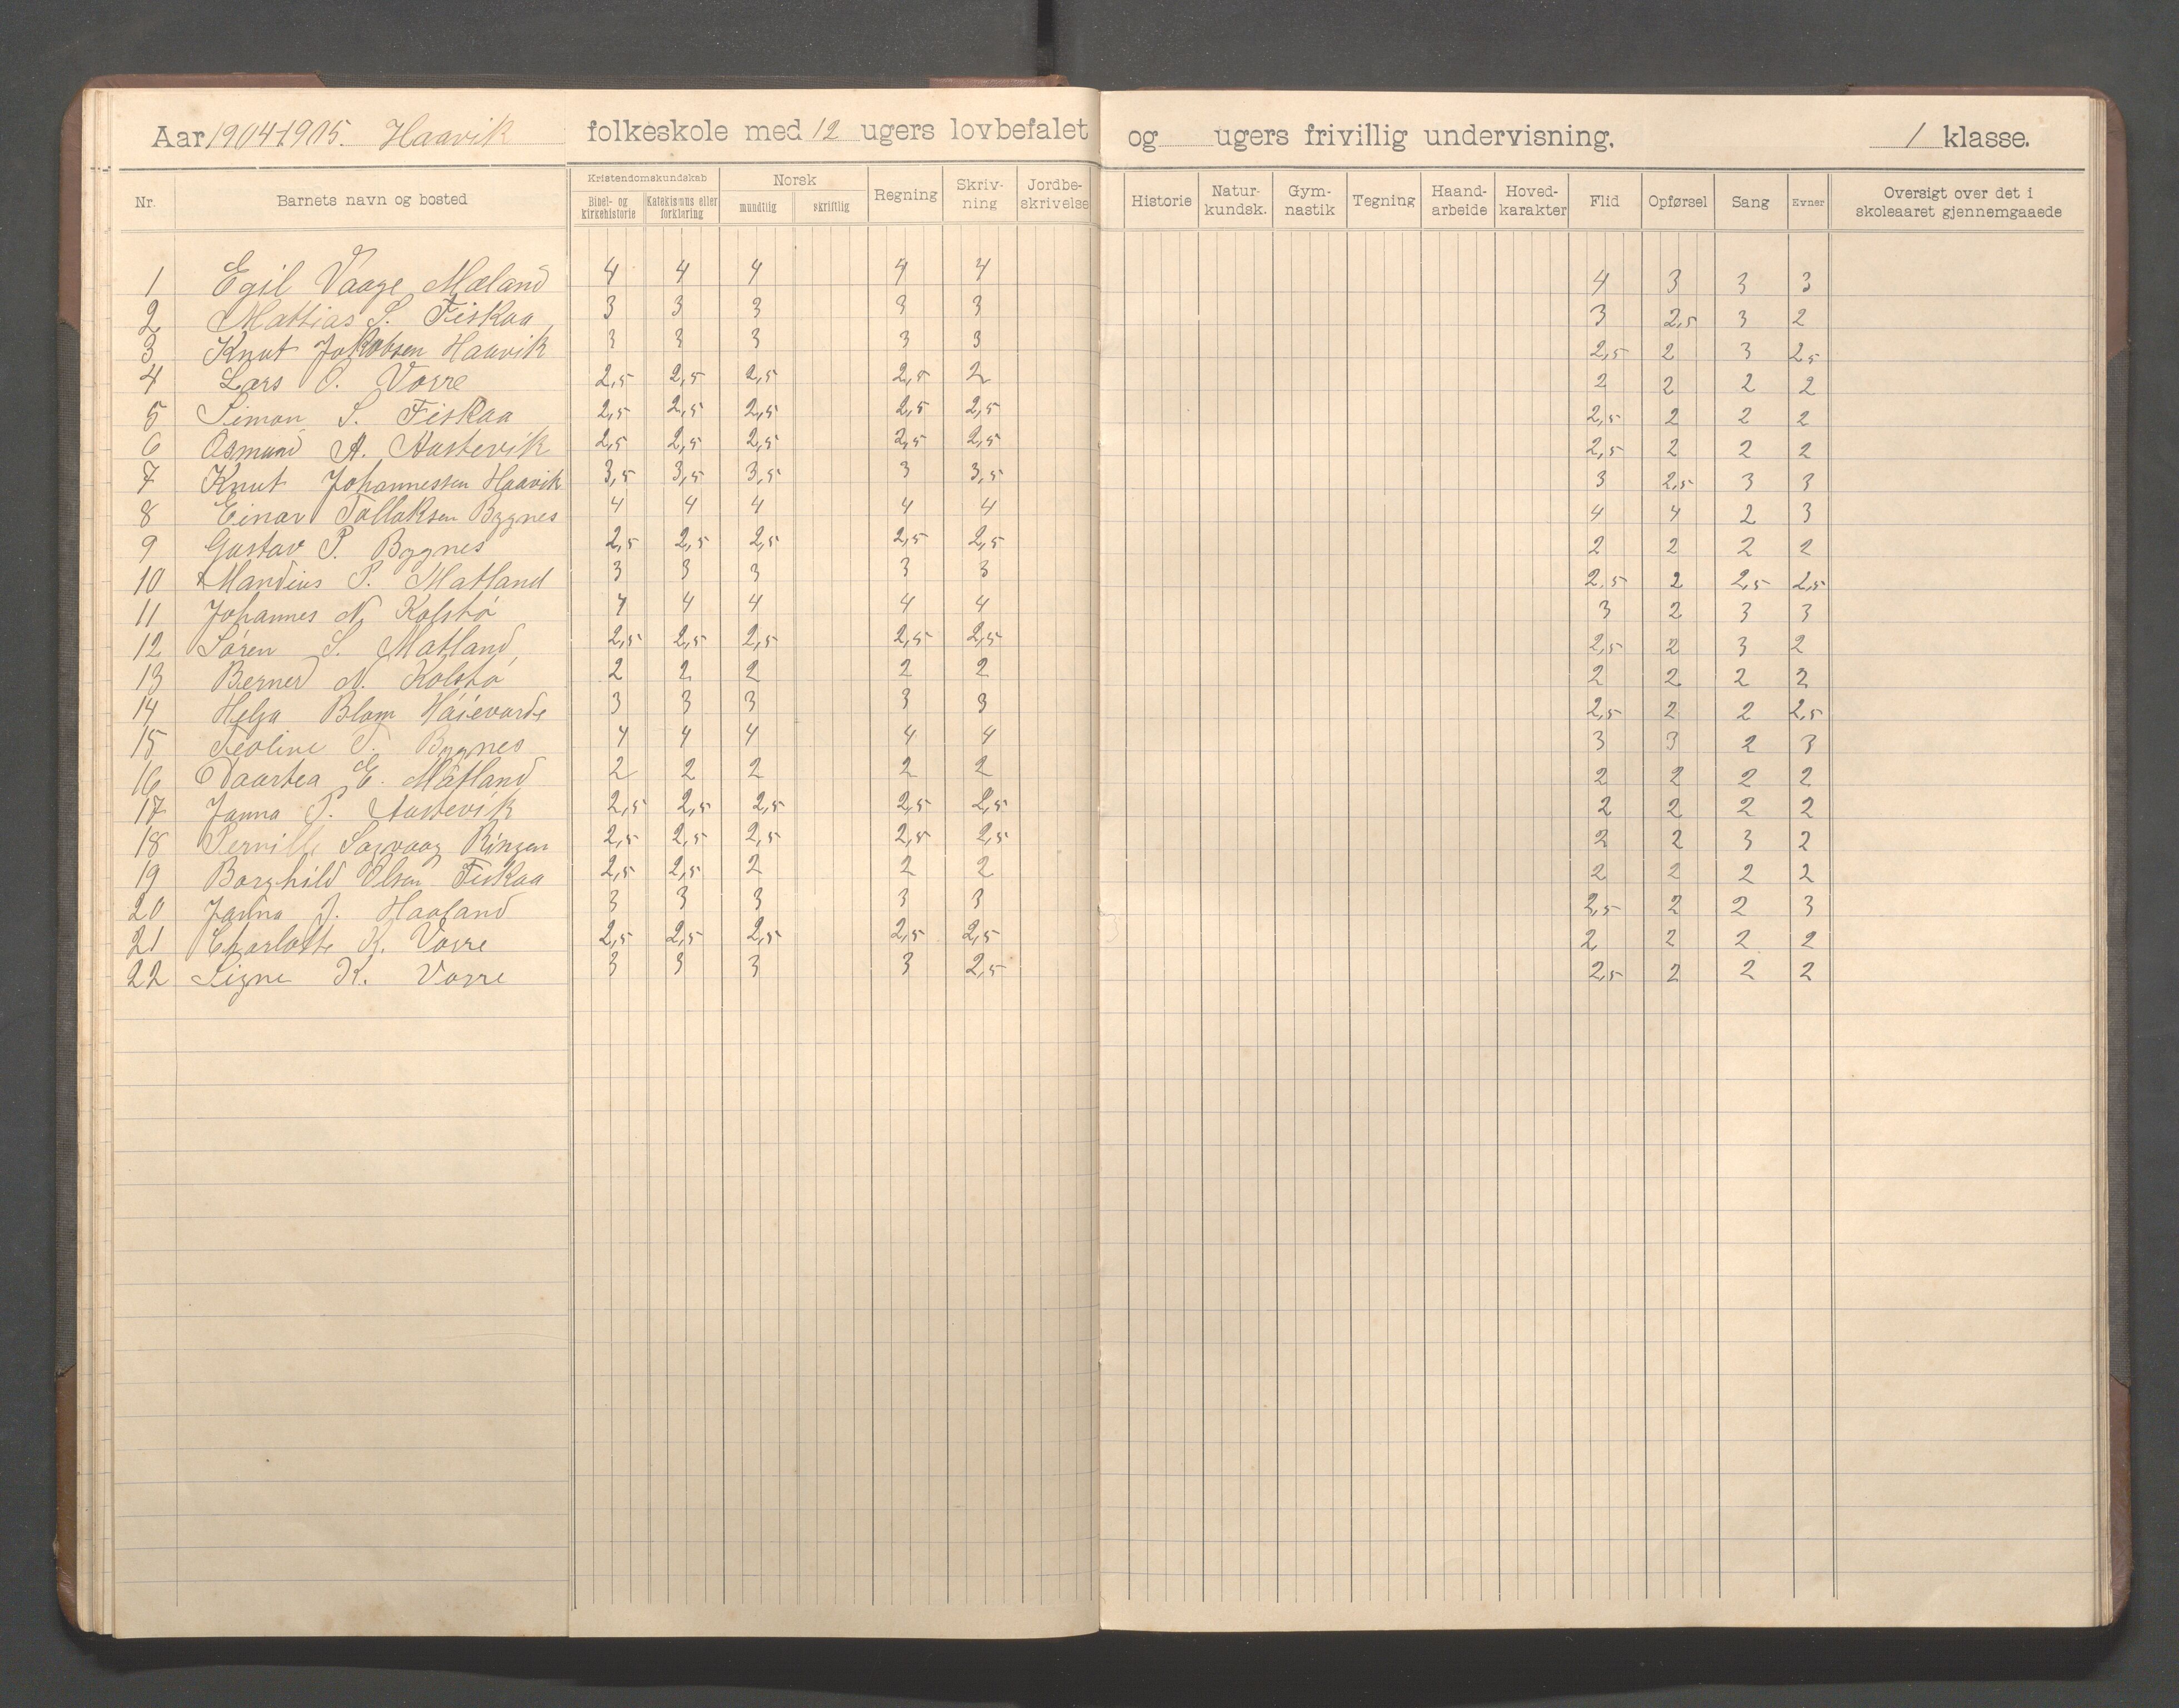 Aar 1904-1905. Haavik folkeskole med 12 ugers lovbefalet og ugers frivillig undervisning. 1 klasse.
Nr. Barnets navn og bosted Kristendomskundskab Bibel- og kirkehistorie Katekismus eller forklaring Norsk mundtlig skriftlig Regning Skriv-ning Jordbe-skrivelse Historie Natur-kundsk. Gym-nastik Tegning Haand-arbeide Hoved-karakter Flid Opførsel Sang Evner Oversigt over det i skoleaaret gjennemgaaede
1 Egil Vaage Mæland 4 4 4 4 4 4 3 3 3
2 Mattias S. Fiskaa 3 3 3 3 3 3 2,5 3 2
3 Knut Jakobsen Haavik 3 3 3 3 3 2,5 2 3 2,5
4 Lars O. Vorre 2,5 2,5 2,5 2,5 2 2 2 2 2
5 Simon S. Fiskaa 2,5 2,5 2,5 2,5 2,5 2,5 2 2 2
6 Osmund A. Austevik 2,5 2,5 2,5 2,5 2,5 2,5 2 2 2
7 Knut Johannessen Haavik 3,5 3,5 3,5 3 3,5 3 2,5 3 3
8 Einar Tollaksen Bygnes 4 4 4 4 4 4 4 2 3
9 Gustav P. Bygnes 2,5 2,5 2,5 2,5 2,5 2 2 2 2
10 Mandius P. Matland 3 3 3 3 3 2,5 2 2,5 2,5
11 Johannes N. Kolstø 4 4 4 4 4 3 2 3 3
12 Søren S. Matland 2,5 2,5 2,5 2,5 2,5 2,5 2 3 2
13 Berner N. Kolstø 2 2 2 2 2 2 2 2 2
14 Helga Blom Høievarde 3 3 3 3 3 2,5 2 2 2,5
15 T. Bygnes 4 4 4 4 4 3 3 2 3
16 E. Matland 2 2 2 2 2 2 2 2 2
17 Janna P. Austevik 2,5 2,5 2,5 2,5 2,5 2 2 2 2
18 Pernille Sagvaag Ringen 2,5 2,5 2,5 2,5 2,5 2 2 3 2
19 Borghild Olsen Fiskaa 2,5 2,5 2 2 2 2 2 2 2
20 J. Haaland 3 3 3 3 3 2,5 2 2 3
21 Charlotte K. Vorre 2,5 2,5 2,5 2,5 2,5 2 2 2 2
22 Signe K. Vorre 3 3 3 3 2,5 2,5 2 2 2